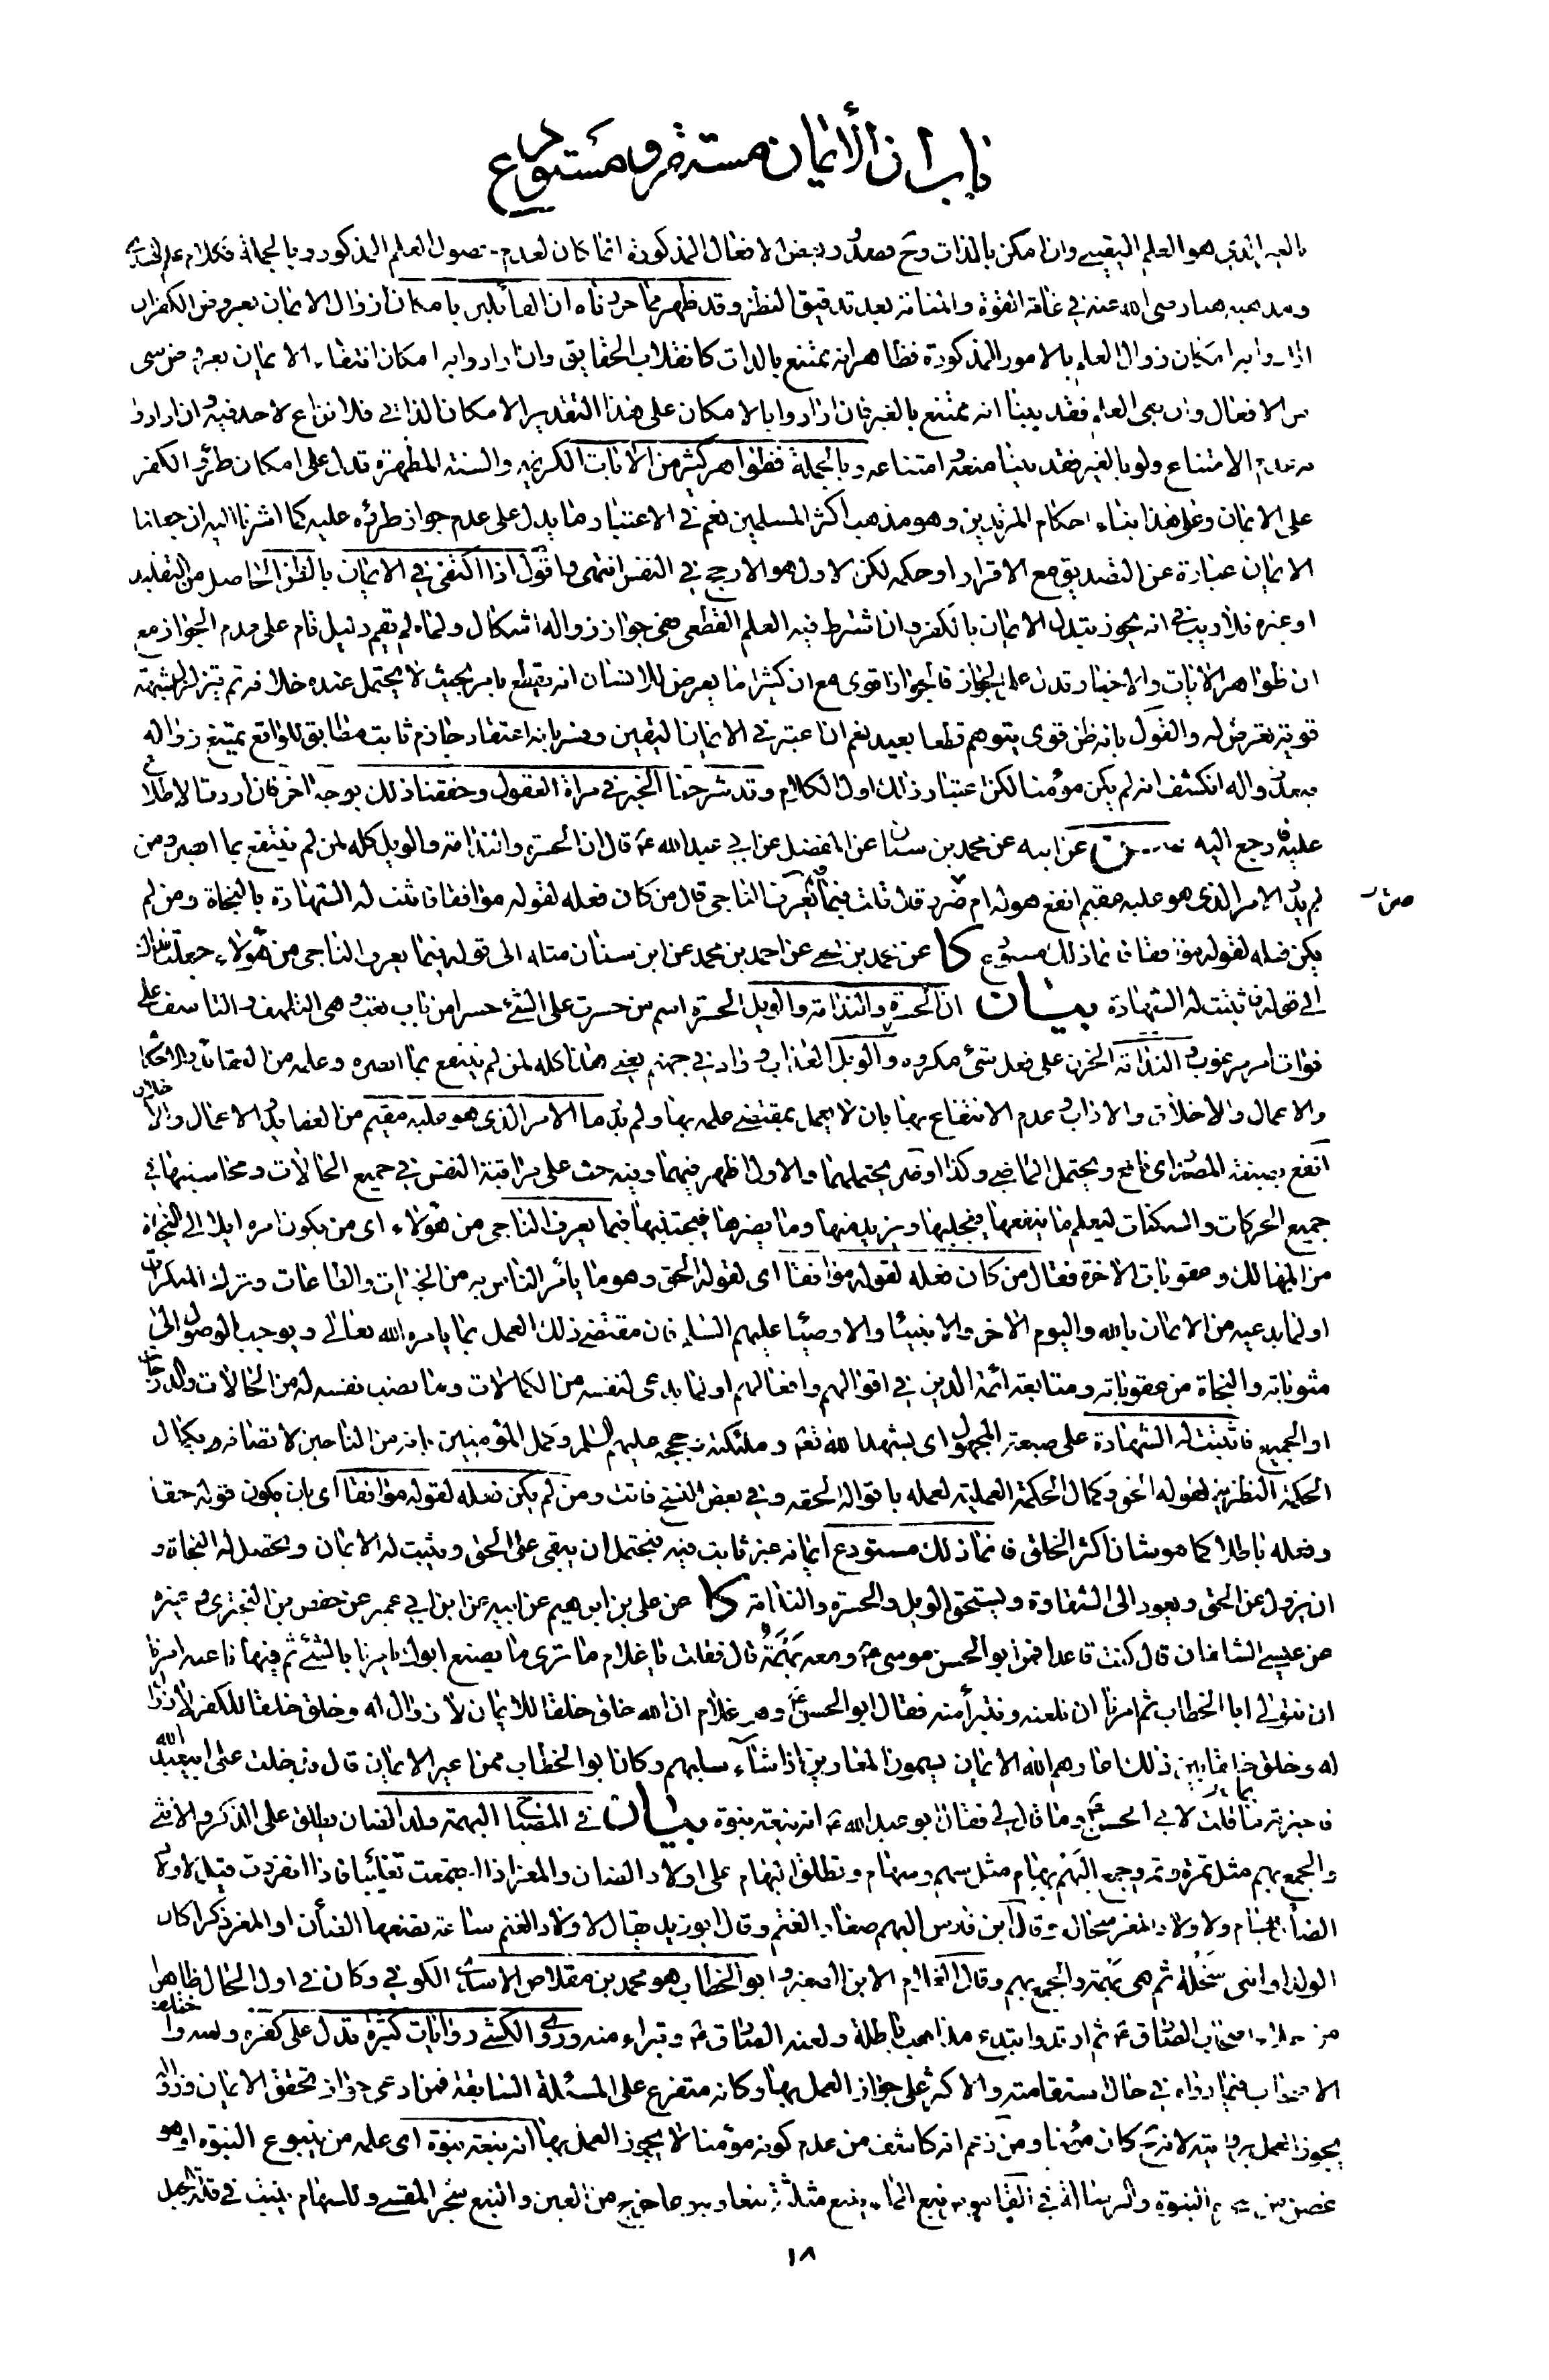 باب ان الأيمان مستقر و مستودع
بالغير الذي هو العلم اليقيني وان امكن بالذات وح فصدور بعض الافعال المذكورة انما كان لعدم حصول العلم المذكور وبالجملة فكلام علم الهدى
ومذهبه هنا رضى الله عنه في غاية القوة والمتانة بعد تدقيق النظر وقد ظهر مما حررناه ان القائلين بامكان زوال الايمان بعروض الكفر ان
ارادوا به امكان زوال العلم بالامور المذكورة فظاهر انه يمتنع بالذات كانقلاب الحقايق وان ارادوا به امكان انتفاء الايمان بعروض شى
من الافعال وان بقى العلم فقد بينا انه ممتنع بالغير فان ارادوا بالامكان على هذا التقدير الامكان الذاتي فلا نزاع لاحد فيه وان ارادوا
به عدم الامتناع ولو بالغير فقد بينا منعه امتناعه وبالجملة فظواهر كثير من الايات الكريمة والسنة المطهرة تدل على امكان طروّ الكفر
على الايمان وعلى هذا بناء احكام المرتدين وهو مذهب اكثر المسلمين نعم في الاعتبار ما يدل على عدم جواز طروّه عليه كما اشرنا اليه ان جعلنا
الايمان عبارة عن التصديق مع الاقرار او حكمه لكن الاول هو الارجح في النفس انتهى واقول اذا اكتفى في الايمان بالظن الحاصل من التقليد
او غيره فلا ريب في انه يجوز تبدل الايمان بالكفر وان اشترط فيه العلم القطعى ففي جواز زواله اشكال ولما لم يقم دليل تام على عدم الجواز مع
ان ظواهر الايات والاخبار تدل على الجواز فالجواز اقوى مع ان كثيرا ما يعرض للانسان انه يقطع بامر بحيث لا يحتمل عنده خلافه ثم يتزلزل لشبهة
قوية تعرض له والقول بانه ظن قوى يتوهم قطعا بعيد نعم ان اعتبر في الايمان اليقين وفسر بانه اعتقاد جازم ثابت مطابق للواقع يمتنع زواله
فبعد زواله انكشف انه لم يكن مؤمنا لكن اعتبار ذلك اول الكلام وقد شرحنا الخبر في مراة العقول وحققنا ذلك بوجه اخر فان اردت الاطلاع
عليه فارجع اليه سن عن ابيه عن محمد بن سنان عن المفضل عن ابي عبد الله ع قال ان الحسرة والندامة والويل كله لمن لم ينتفع بما ابصر ومن
لم يدر الامر الذى هو عليه مقيم انفع هو له ام ضرر قال قلت فبما يعرف الناجى قال من كان فعله لقوله موافقا فاثبت له الشهادة بالنجاة ومن لم
يكن فعله لقوله موافقا فانما ذلك مستودع كا عن محمد بن يحيى عن احمد بن محمد عن ابن سنان مثله الى قوله فبما يعرف الناجى من هؤلاء جعلت فداك
الى قوله فاثبتت له الشهادة بيـان ان الحسرة والندامة والويل الحسرة اسم من حسرت على الشيء حسرا من باب تعب وهى التلهف والتاسف على
فوات امر مرغوب والندامة الحزن على فعل شئ مكروه والويل العذاب وواد في جهنم يعني هذا كله لمن لم ينتفع بما ابصره وعلمه من العقائد والاحكام
والاعمال والاخلاق والاداب وعدم الانتفاع بها بان لا يعمل بمقتضى علمه بها ولم يدر ما الامر الذى هو عليه مقيم من العقايد والاعمال والاخلاق
انفع بصيغة المصدر اى نافع ويحتمل الماضى وكذا اوضر يحتملهما والاول اظهر فيهما وفيه حث على مراقبة النفس في جميع الحالات ومحاسبتها في
جميع الحركات والسكنات ليعلم ما ينفعها فيجلبها ويزيد منها وما يضرها فيجتنبها فبما يعرف الناجى من هؤلاء اى من يكون امره ايلا الى النجاة
من المهالك وعقوبات الاخرة فقال من كان فعله لقوله موافقا اى لقوله الحق وهو ما يأمر الناس به من الخيرات والطاعات وترك المنكرات
او لما يدعيه من الايمان بالله واليوم الاخر والانبياء والاوصياء عليهم السلام فان مقتضى ذلك العمل بما يامره الله تعالى ويوجب الوصول الى
مثوباته والنجاة من عقوباته ومتابعة ائمة الدين في اقوالهم وافعالهم او لما يدعى لنفسه من الكمالات وما نصب نفسه له من الحالات والدرجات
او الجميع فاثبتت له الشهادة على صيغة المجهول اى يشهد الله تعم وملئكته وحججه عليهم السلم وكمل المؤمنين بانه من الناجين لاتصافه بكمال
الحكمة النظرية لقوله الحق وكمال الحكمة العملية لعمله باقواله الحقه وفي بعض النسخ فاتت ومن لم يكن فعله لقوله موافقا اى بان يكون قوله حقا
وفعله باطلا كما هو شان اكثر الخلق فانما ذلك مستودع ايمانه غير ثابت فيه فيحتمل ان يبقى على الحق ويثبت له الايمان ويحصل له النجاة و
ان يزول عن الحق ويعود الى الشقاوة ويستحق الويل والحسرة والندامة كا عن على بن ابرهيم عن ابيه عن ابن ابي عمير عن حفص بن البخترى وغيره
عن عيسى الشلقان قال كنت قاعدا فمر ابو الحسن موسى ع ومعه بَهْمَةٌ قال فقلت يا غلام ما ترى ما يصنع ابوك يامرنا بالشئ ثم ينهانا عنه امرنا
ان نتولى ابا الخطاب ثم امرنا ان نلعنه ونتبرأ منه فقال ابو الحسن ع وهو غلام ان الله خلق خلقا للايمان لا زوال له وخلق خلقا للكفر لا زوال
له وخلق خلقا بين ذلك اعارهم الله الايمان يسمون المعارين اذا شاء سلبهم وكان ابو الخطاب ممن اعير الايمان قال فدخلت على ابيعبد الله
فاخبرته بما قلت لابي الحسن ع وما قال لي فقال ابو عبد الله ع انه نبعة نبوة بيـان في المصباح البهمة ولد الضان يطلق على الذكر والانثى
والجمع بهم مثل تمرة وتمر وجمع البَهْم بهام مثل سهم وسهام وتطلق البهام على اولاد الضان والمعز اذا اجتمعت تغليبا فاذا انفردت قيل لاولاد
الضأن بهام ولاولاد المعز سخال وقال ابن فارس البهم صغار الغنم وقال ابو زيد يقال لاولاد الغنم ساعة تضعها الضأن او المعز ذكرا كان
الولد او انثى سَخْلة ثم هى بَهْمة والجمع بهم وقال الغلام الابن الصغير وابو الخطاب هو محمد بن مقلاص الاسدى الكوفي وكان في اول الحال ظاهرا
من اجلاء اصحاب الصادق ع ثم ارتد وابتدع مذاهب باطلة ولعنه الصادق ع وتبراء منه وروى الكشى روايات كثيرة تدل على كفره ولعنه واختلف
الاصحاب فيما رواه في حال استقامته والاكثر على جواز العمل بها وكانه متفرع على المسئلة السابقة فمن ادعى جواز تحقق الايمان وزواله
يجوز العمل بروايته لانه ح كان مؤمنا ومن زعم انه كاشف من عدم كونه مؤمنا لا يجوز العمل بها انه نبعة نبوة اى علمه من ينبوع النبوه او هو
غصن من شجرة النبوة والرسالة في القاموس نبع الماء ينبع مثلثة نبعا ونبوعا خرج من العين والنبع شجر للقسى وللسهام ينبت في قلة الجبل
صرر
١٨